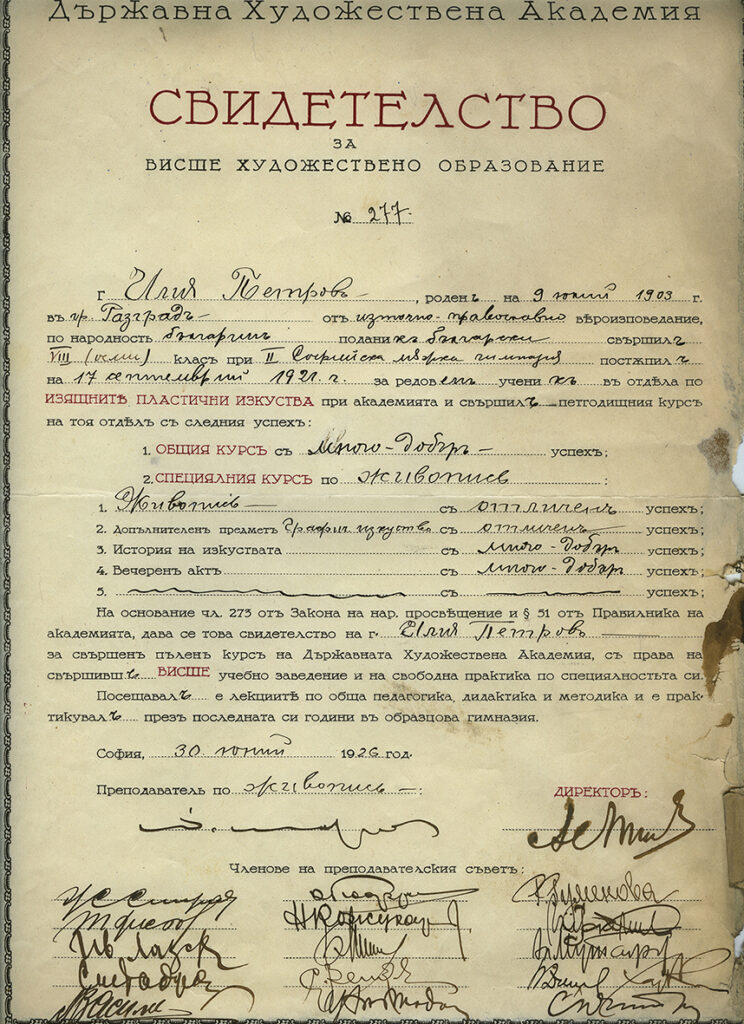 Държавна Художествена Академия
СВИДЕТЕЛСТВО
ЗА
ВИСШЕ ХУДОЖЕСТВЕНО ОБРАЗОВАНИЕ
№ 277.
Г Илия Петровъ, роденъ на 9 юний 1903 г.
въ гр. Разградъ отъ източно-православно вѣроизповедание,
по народность българинъ поданикъ български свършилъ
VIII (осми) класъ при II Софийска мѫжка гимназия постѫпилъ
на 17 септемврий 1921. г. за редовенъ ученикъ въ отдѣла по
ИЗЯЩНИТѢ ПЛАСТИЧНИ ИЗКУСТВА при академията и свършилъ петгодищния курсъ
на тоя отдѣлъ съ следния успехъ:
1. ОБЩИЯ КУРСЪ съ много-добъръ успехъ;
2. СПЕЦИАЛНИЯ КУРСЪ по живопись:
1. Живопись съ отличенъ успехъ;
2. Допълнителенъ предметъ График. изкуство съ отличенъ успехъ;
3. История на изкуствата съ много-добъръ успехъ;
4. Вечеренъ актъ съ много-добъръ успехъ;
5. съ успехъ;
На основание чл. 273 отъ Закона на нар. просвѣщение и § 51 отъ Правилника на
академията, дава се това свидетелство на г. Илия Петровъ
за свършенъ пъленъ курсъ на Държавната Художествена Академия, съ права на
свършившъ ВИСШЕ учебно заведение и на свободна практика по специалностьта си.
Посещавалъ е лекциитѣ по обща педагогика, дидактика и методика и е прак-
тикувалъ презъ последната си години въ образцова гимназия.
София, 30 юний 1926 год.
Преподаватель по живопись:
ДИРЕКТОРЪ:
Членове на преподавателския съветъ: